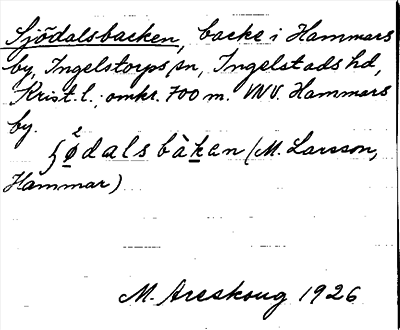 Sjödalsbacken, backe i Hammars
by, Ingelstorps sn, Ingelstads hd,
Krist. l., omkr. 700 m. VNV. Hammars
by.
dalsbàkan (M. Larsson,
Hammar)
M. Areskoug 1926